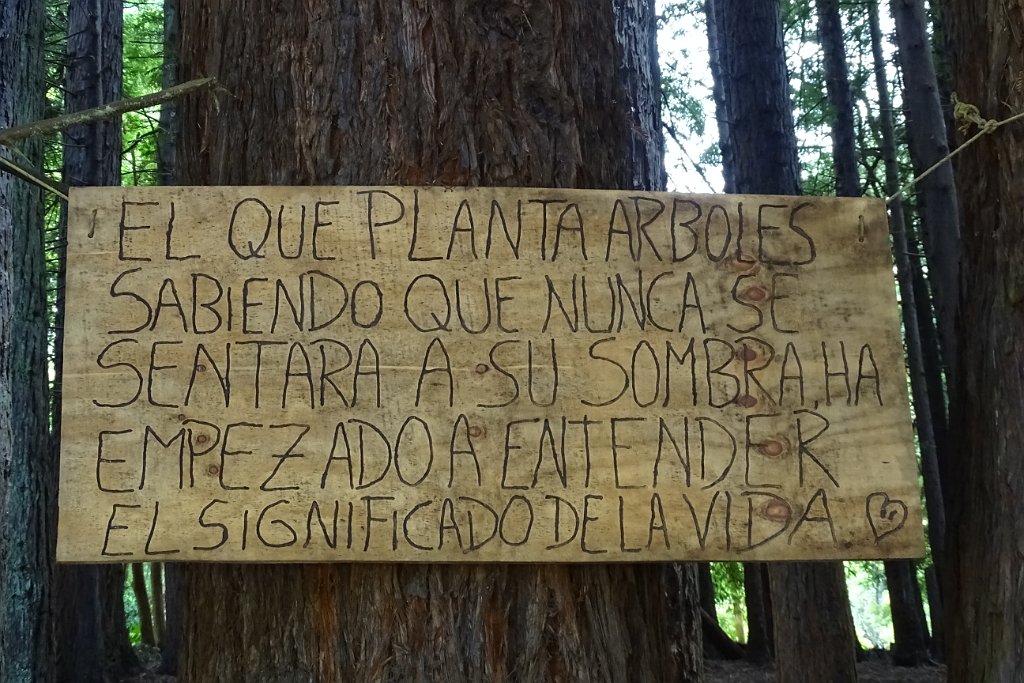 EL QUE PLANTA ARBOLES
SABIENDO QUE NUNCA SE
SENTARA A SU SOMBRA, HA
EMPEZADO A ENTENDER
EL SIGNIFICADO DE LA VIDA